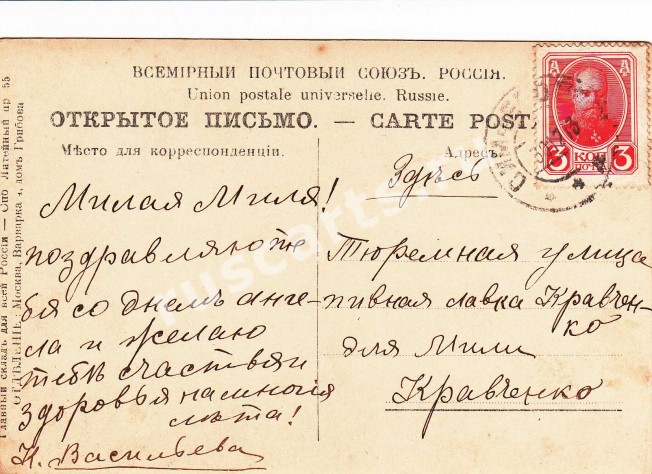 ВСЕМІРНЫЙ ПОЧТОВЫЙ СОЮЗЪ. РОССІЯ.
Union postale universelle. Russie.
ОТКРЫТОЕ ПИСЬМО. — CARTE POST
Мѣсто для корреспонденціи.
Адресъ.
Милая Миля!
поздравляю те
бя со днемъ анге-
ла и желаю
тебѣ счастья и
здоровья на многія
лѣта!
Н. Васильева
Здѣсь
Тюремная улица
пивная лавка Кравчен-
ко
для Мили
Кравченко
3 КОП 3
Главный складъ для всей Россіи — Спб Литейный пр 55
ОТДѢЛЕНІЕ, Москва, Варварка, домъ Грибова
ruscarts.ru